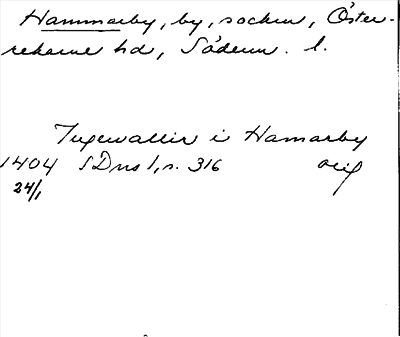 Hammarby, by, socken, Öster-
rekarne hd, Söderm. l.
Ingewallir i Hamarby
1404 SDns 1, s. 316 orig
24/1